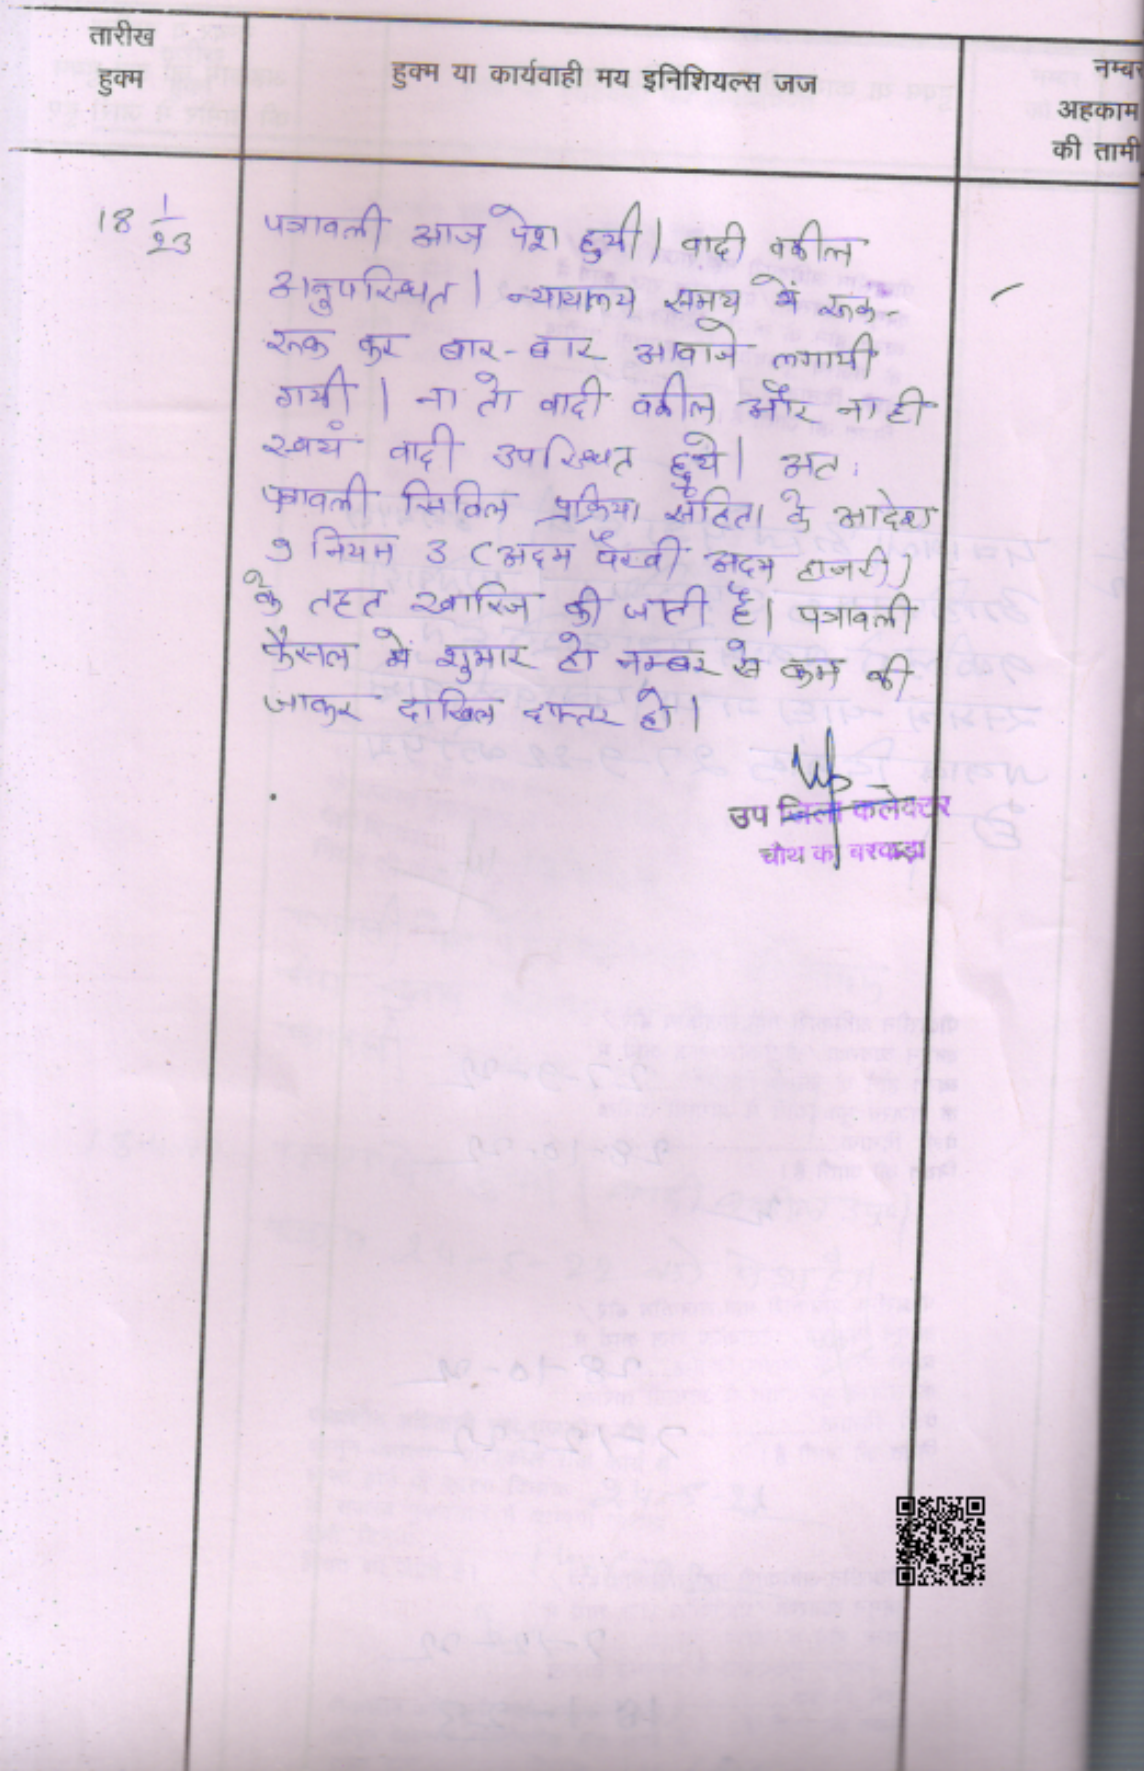 तारीख
हुक्म
हुक्म या कार्यवाही मय इनिशियल्स जज
नम्बर
अहकाम
की तामी
18 1/23
पत्रावली आज पेश हुयी। वादी वकील
अनुपस्थित। न्यायालय समय में रूक-
रूक कर बार-बार आवाजे लगायी
गयी। ना तो वादी वकील और ना ही
स्वयं वादी उपस्थित हुये। अतः
पत्रावली सिविल प्रक्रिया संहिता के आदेश
9 नियम 3 (अदम पैरवी अदम हाजरी)
के तहत खारिज की जाती है। पत्रावली
फैसल में शुमार हो नम्बर से कम की
जाकर दाखिल दफ्तर हो।
उप जिला कलेक्टर
चौथ का बरवाड़ा